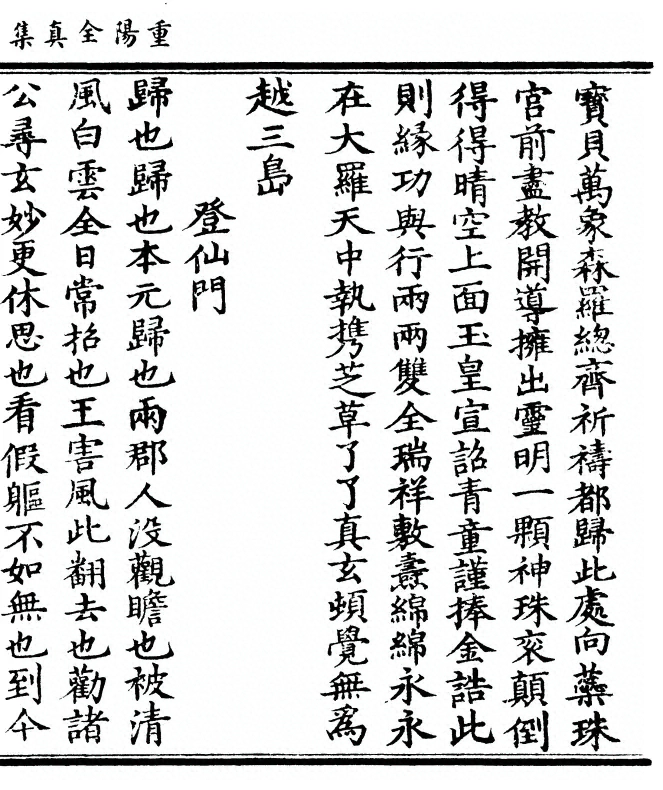 重陽全真集
寳貝萬象森羅緫齊祈禱都歸此處向蘂珠
宫前盡教開導擁出靈明一顆神珠衮顛倒
得得晴空上面玉皇宣詔青童謹捧金誥此
則緣功與行兩兩雙全瑞祥敷燾綿綿永永
在大羅天中執携芝草了了真玄頓覺無爲
越三島
登仙門
歸也歸也本元歸也兩郡人没觀瞻也被清
風白雲全日常招也王害風此翻去也勸諸
公尋玄妙更休思也看假軀不如無也到今